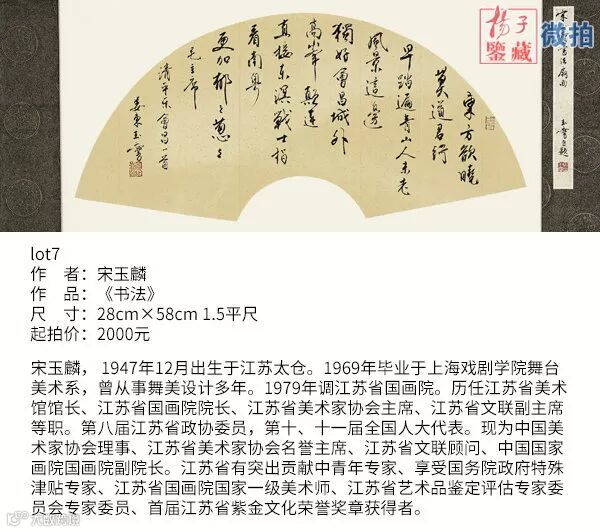 東方欲曉
莫道君行
早踏遍青山人未老
風景這邊
獨好會昌城外
高峯顛連
直接東溟戰士指
看南粤
更加郁々葱々
毛主席
清平乐會昌一首
婁東玉麐
宋玉麐书法扇面
玉麐自题
揚子
鑒藏
微拍
lot7
作 者：宋玉麟
作 品：《书法》
尺 寸：28cm×58cm 1.5平尺
起拍价：2000元
宋玉麟， 1947年12月出生于江苏太仓。1969年毕业于上海戏剧学院舞台
美术系，曾从事舞美设计多年。1979年调江苏省国画院。历任江苏省美术
馆馆长、江苏省国画院院长、江苏省美术家协会主席、江苏省文联副主席
等职。第八届江苏省政协委员，第十、十一届全国人大代表。现为中国美
术家协会理事、江苏省美术家协会名誉主席、江苏文联顾问、中国国家
画院国画院副院长。江苏省有突出贡献中青年专家、享受国务院政府特殊
津贴专家、江苏省国画院国家一级美术师、江苏省艺术品鉴定评估专家委
员会专家委员、首届江苏省紫金文化荣誉奖章获得者。